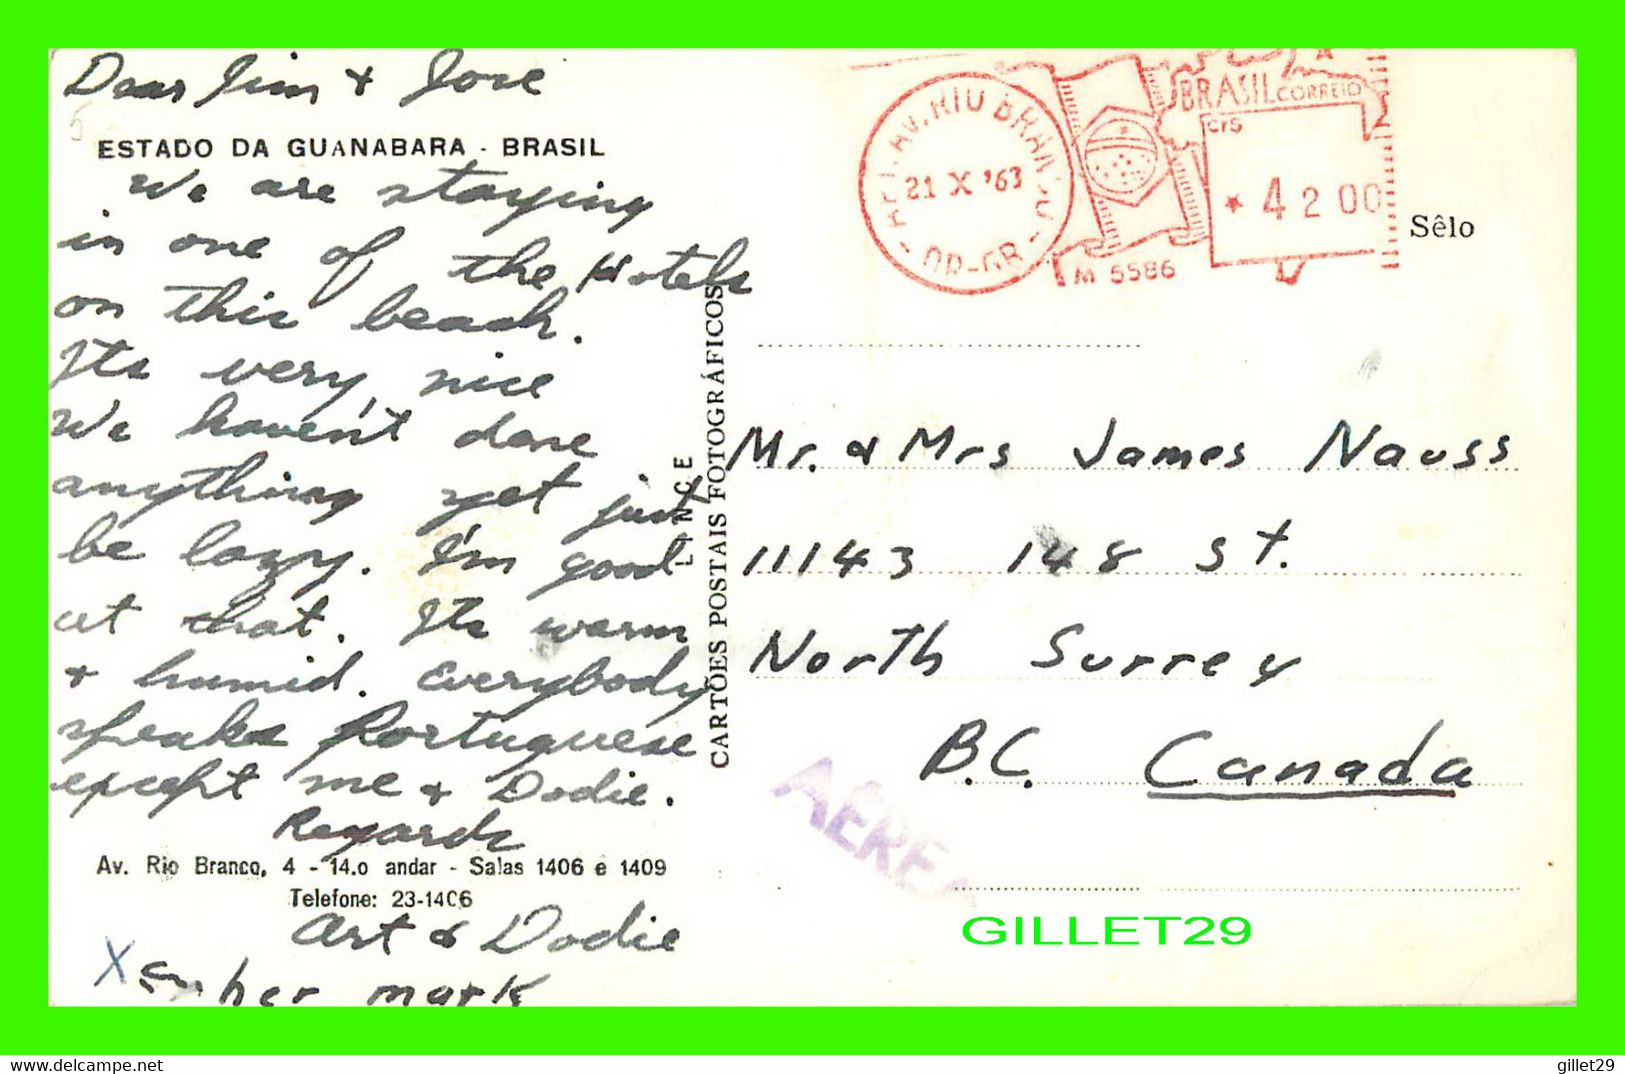 Dear Jim + Jose
ESTADO DA GUANABARA - BRASIL
We are staying
in one of the Hotels
on this beach.
Its very, nice
We haven't done
anything yet just
be lazy. I'm good
at that. Its warm
+ humid. Everybody
speaks Portuguese
except me + Dodie.
Regards
Av. Rio Branco, 4 - 14.o andar - Salas 1406 e 1409
Telefone: 23-1406
Art & Dodie
X her mark
LINCE
CARTÕES POSTAIS FOTOGRÁFICOS
AV. RIO BRANCO
21 X '63
DR-GB
BRASIL CORREIO
Cr$
* 4200
M 5586
Sêlo
Mr. & Mrs James Nauss
11143 148 St.
North Surrey
B.C. Canada
AÉREA
GILLET29
gillet29